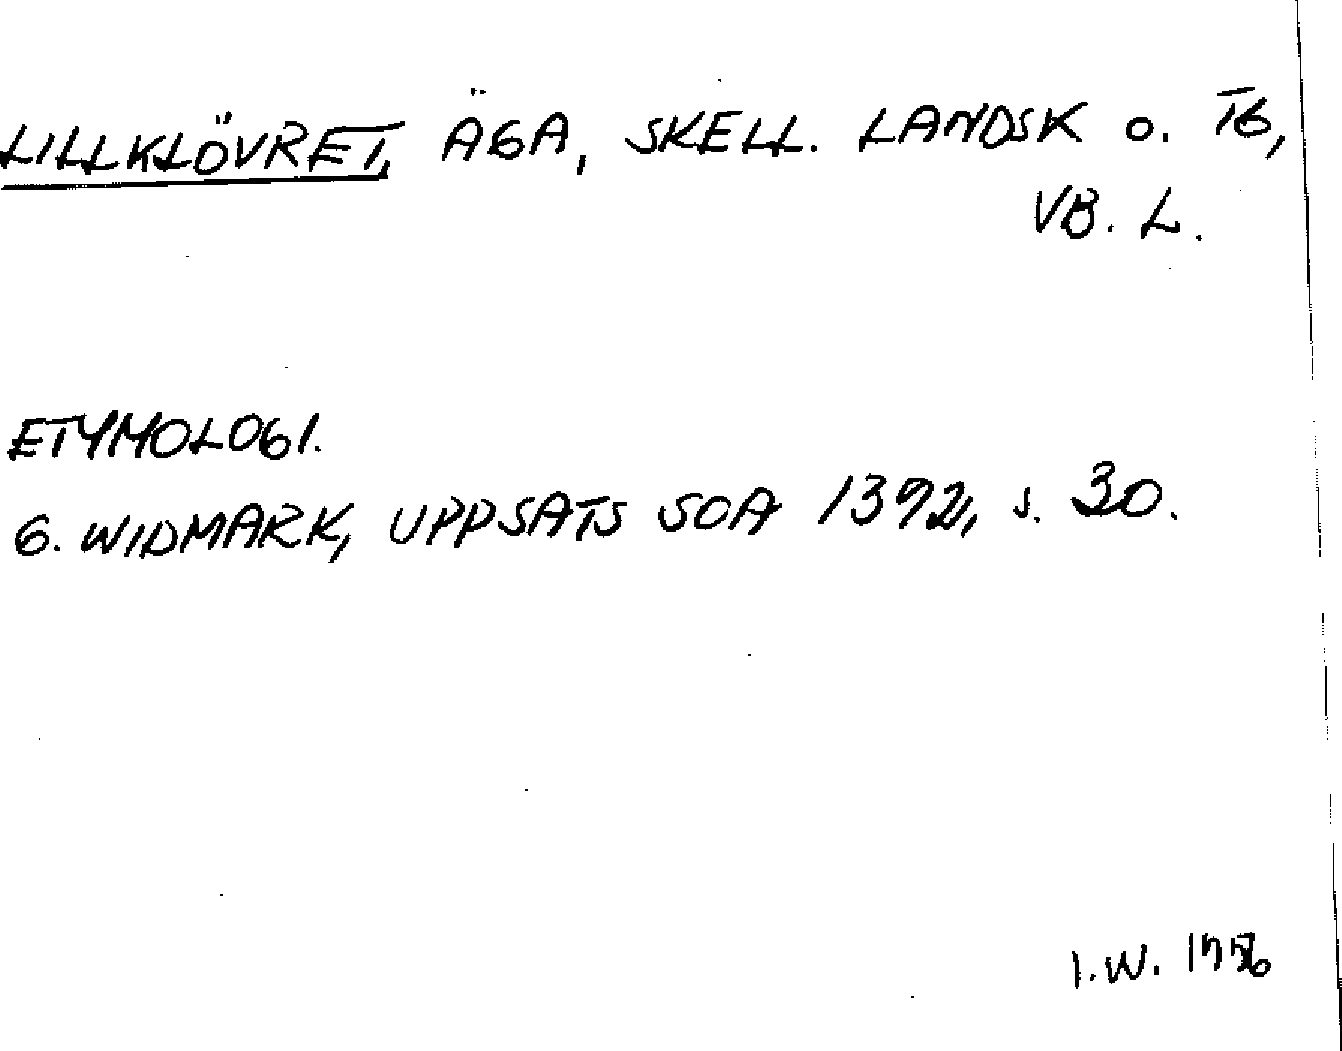 LILLKLÖVRET, ÄGA, SKELL. LANDSK o. TG,
VB. L.
ETYMOLOGI.
G. WIDMARK, UPPSATS SOA 1392, s. 30.
I.W.